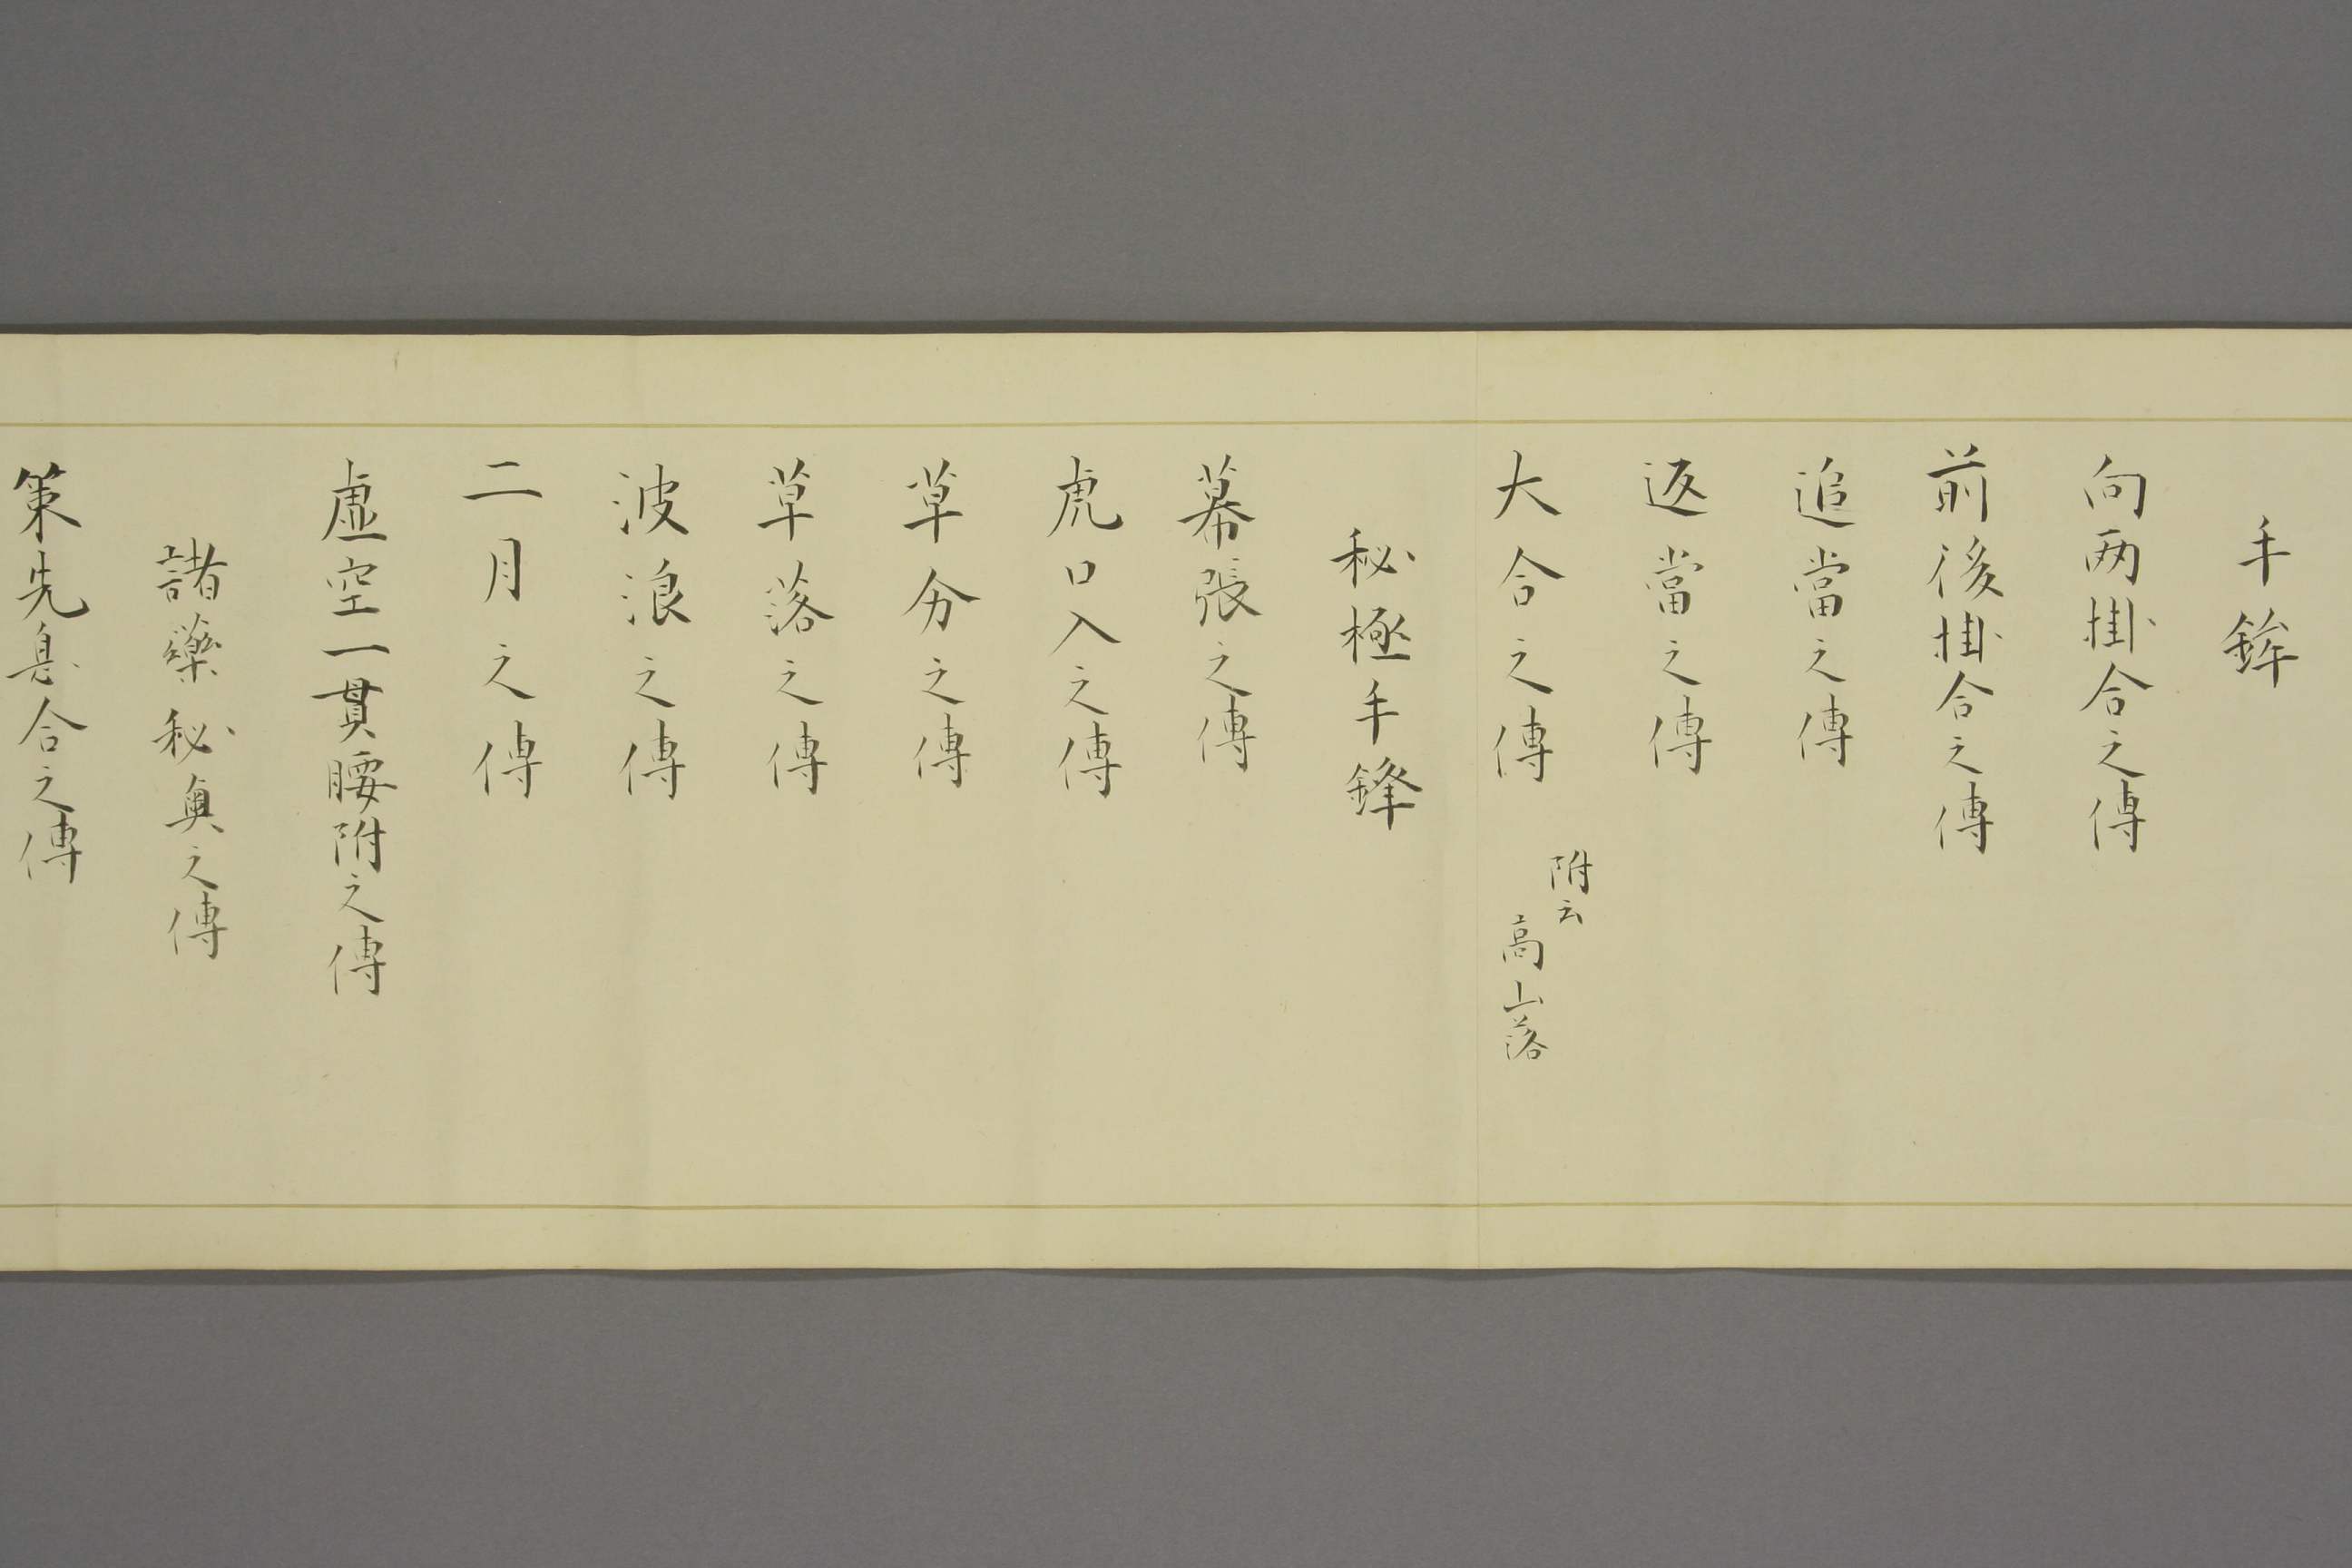 手鉾
向两掛合之傳
前後掛合之傳
追當之傳
返當之傳
大合之傳
附云
高山落
秘極手鋒
幕張之傳
虎口入之傳
草分之傳
草落之傳
波浪之傳
二月之傳
虚空一貫腰附之傳
諸藥秘奥之傳
策先息合之傳